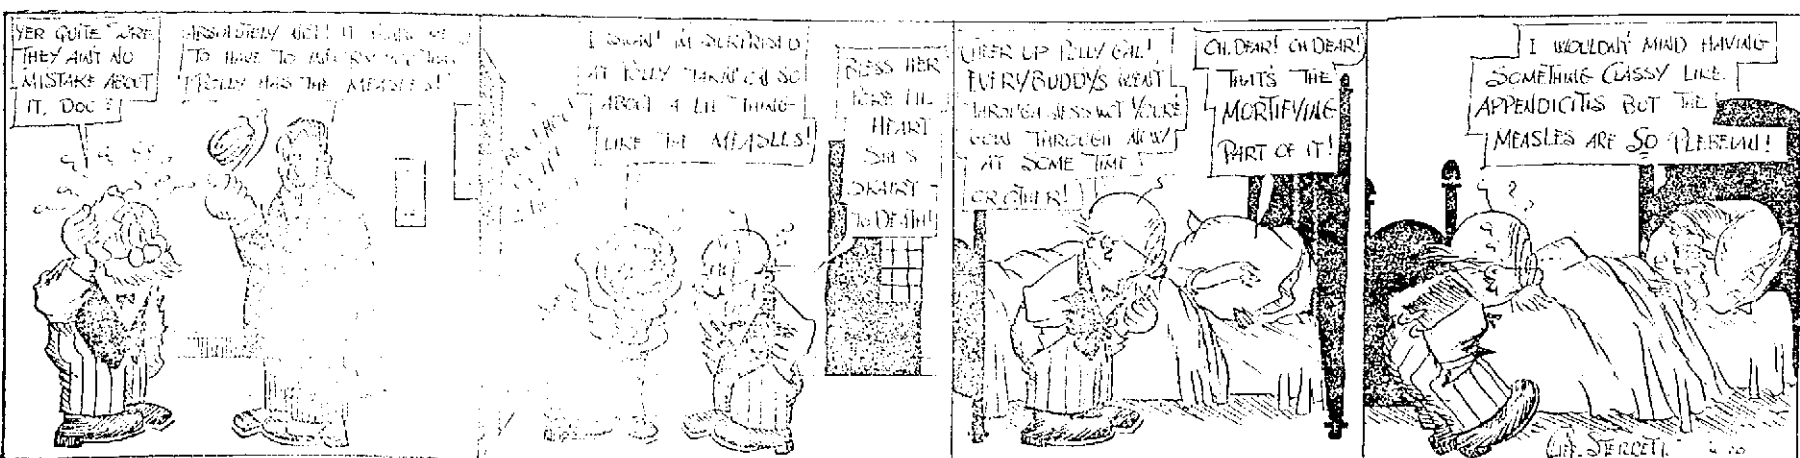 YER QUITE SURE
THEY AIN'T NO
MISTAKE ABOUT
IT, DOC?
ABSOLUTELY NOT! IT
TO HAVE TO
POLLY HAS THE MEASLES!
I SWAN! I'M SURPRISED
AT POLLY TAKIN' ON SO
ABOUT A LIL' THING
LIKE THE MEASLES!
BLESS HER
PORE LIL
HEART
SHE'S
SKAIRT
TO DEATH!
CHEER UP POLLY GAL!
EVERYBUDDY'S WENT
THROUGH JESS WOT YOU'RE
GOIN' THROUGH NOW
AT SOME TIME
OR OTHER!
OH, DEAR! OH DEAR!
THAT'S THE
MORTIFYING
PART OF IT!
I WOULDN'T MIND HAVING
SOMETHING CLASSY LIKE
APPENDICITIS BUT THE
MEASLES ARE SO PLEBEIAN!
CLIFF STERRETT